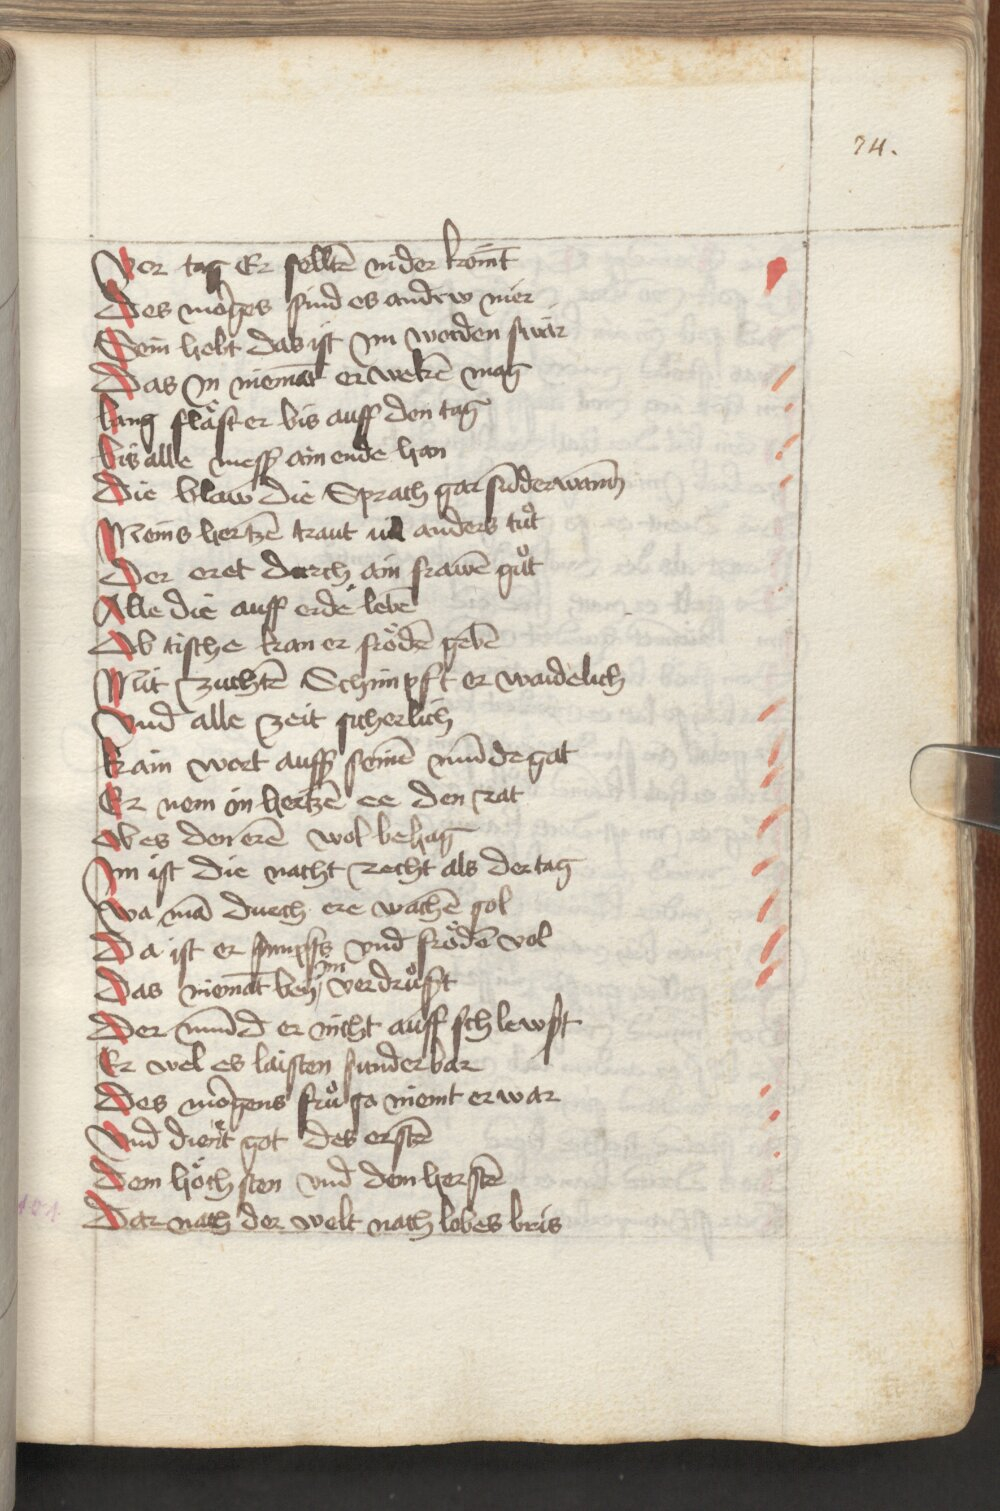 74.
Vor tag Er selltē nider kom̄t
Des morges sind es andrw mer
Sein hebt das ist im worden swär
Das in niemāt erwekē mag
lang slaͤft er bis auff den tag
bis alle mess ain ende han
Die blaw die Sprach gar sūderwann
Meins hertzē traut anders tuͦt
Der eret durch ain frawē guͦt
Alle die auff erde lebē
Ob tische kan er froͤdē gebē
Mit zuchtē Schimpft er waidelich
Vnd alle zeit sicherlich
kain wort auff seinē mundr gat
Er nem in hertzē ee den rat
ob es den erē wol behag
Im ist die nacht recht als der tag
wa mā durch ere wachē sol
Da ist er schimpfs vnd froͤdē vol
Das niemāt bey im verdruͦst
Der mund er nicht auff schlewst
Er wel es laisten sunderbar
Des morgens fruͦ ga niemt er war
Vnd dient got des erstē
Dem hoͤchsten vnd dem herstē
Dar nach der welt nach lobes bris